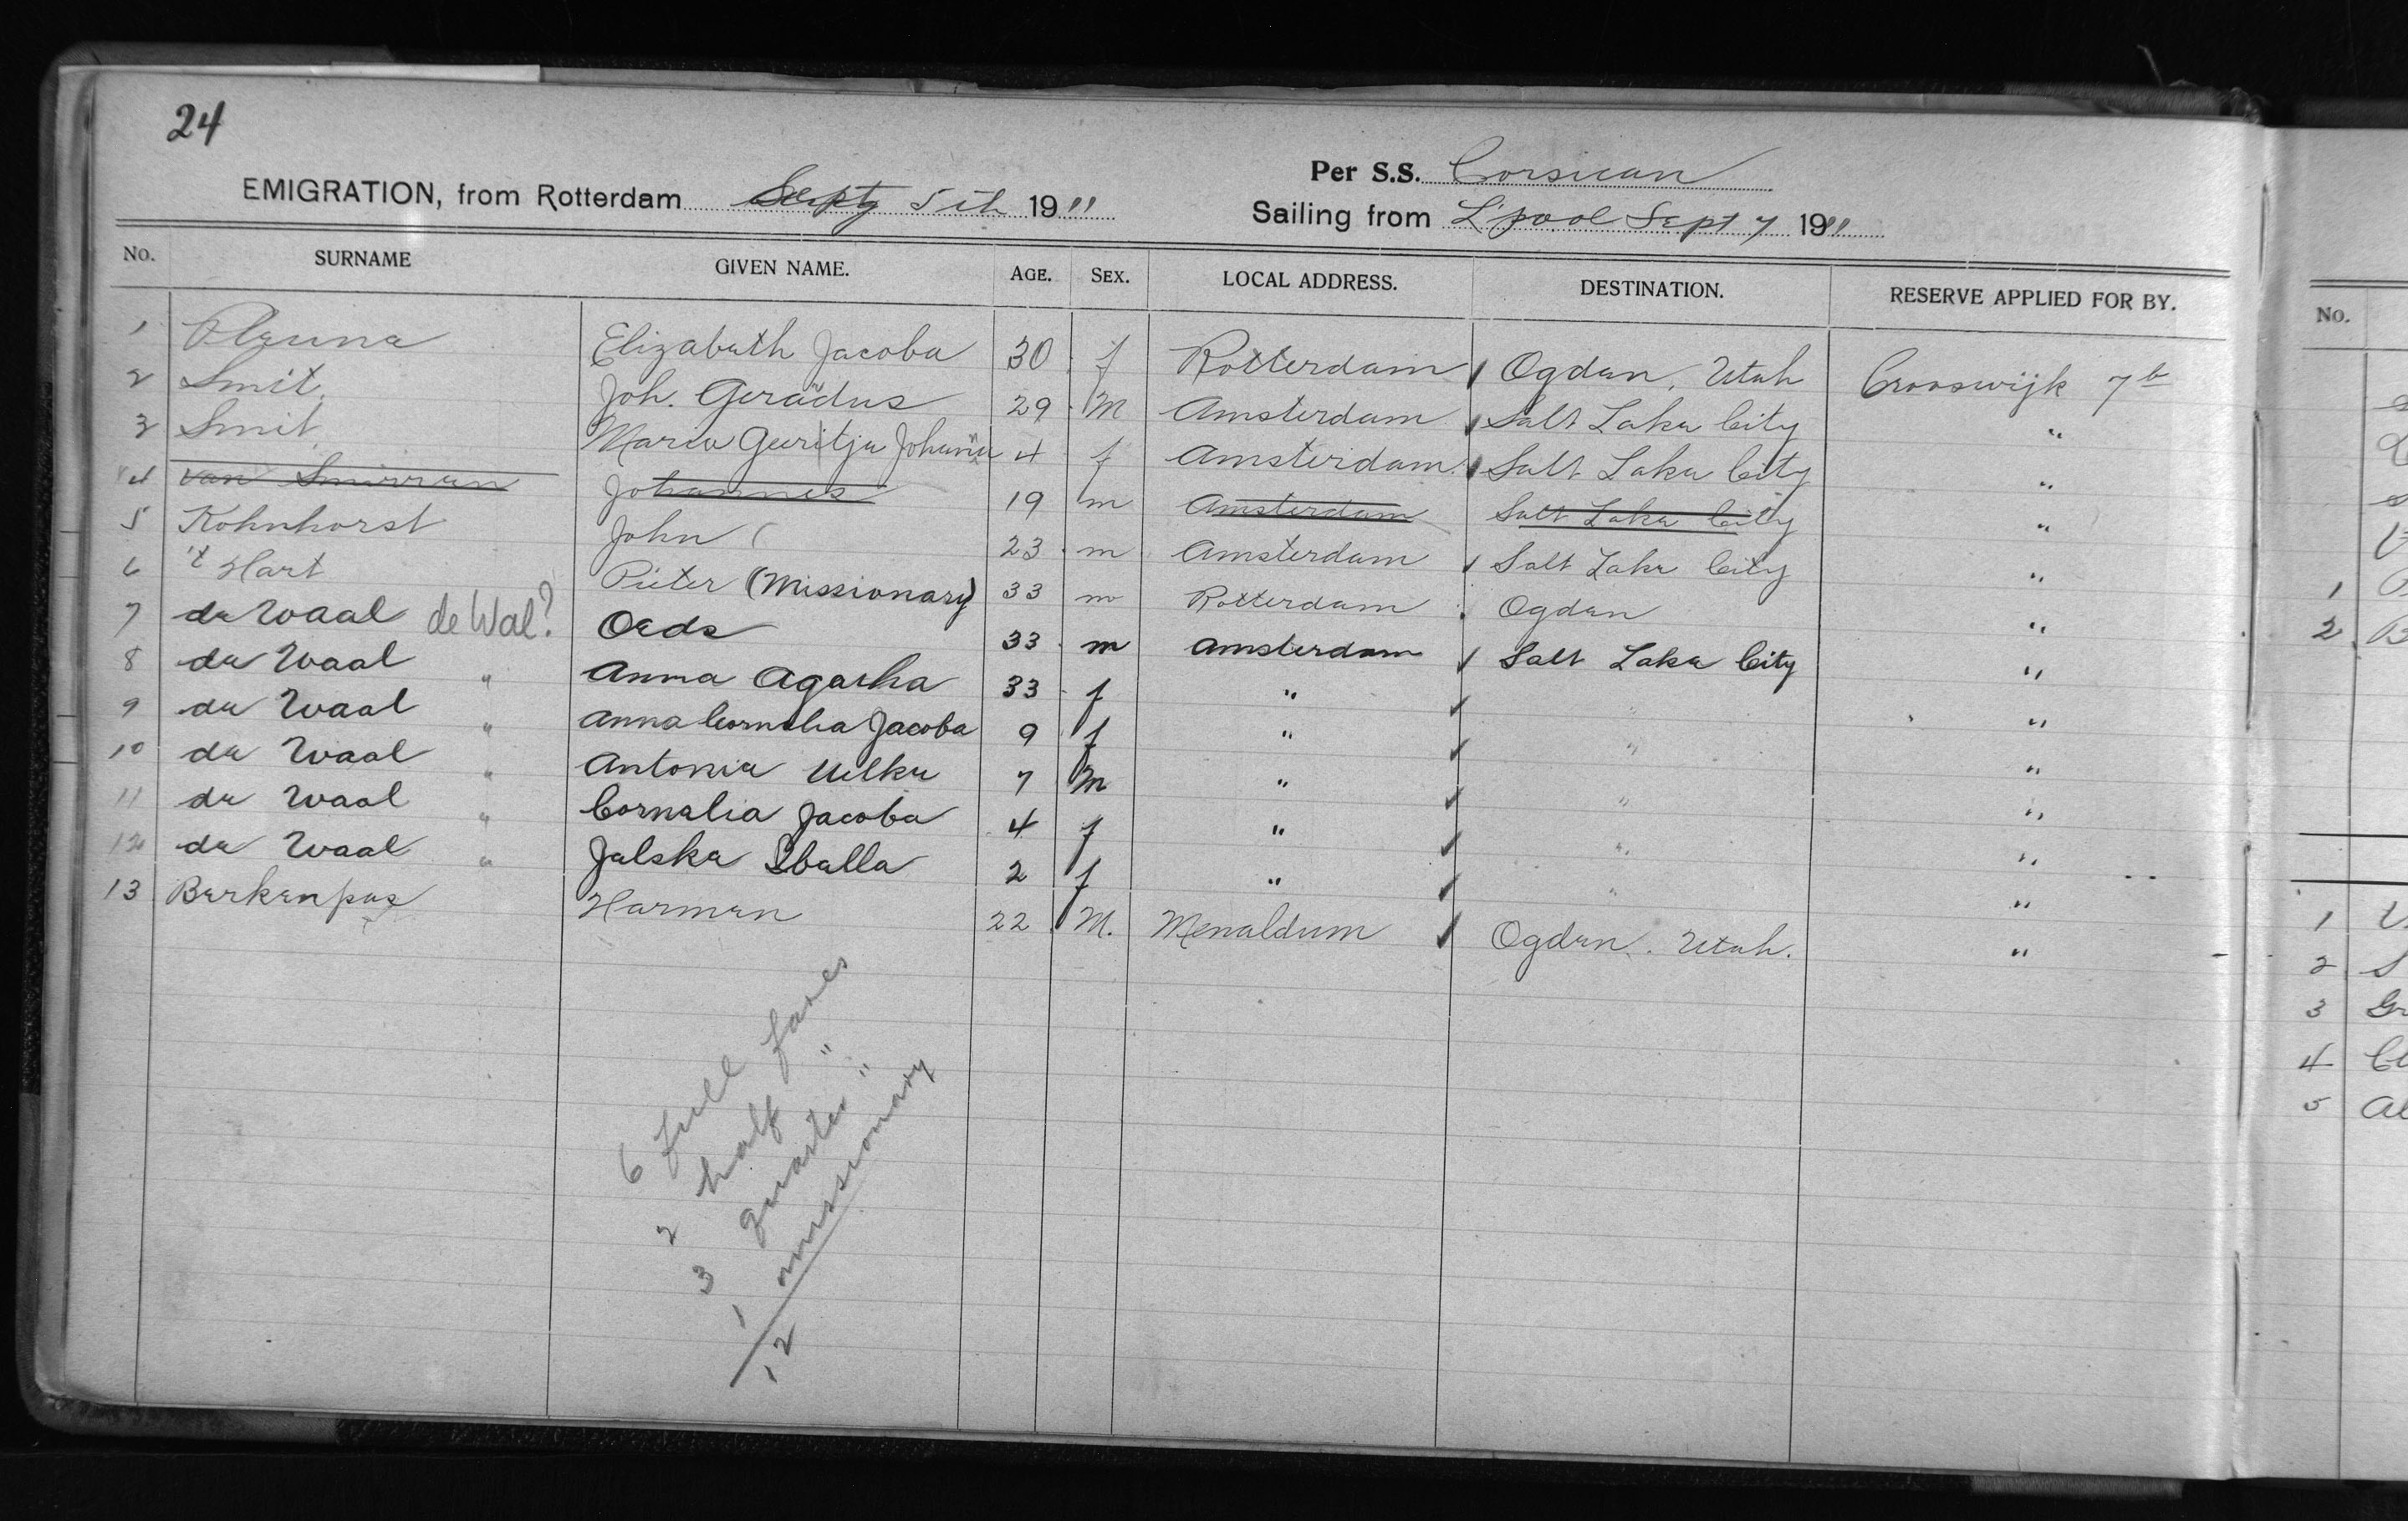 24
EMIGRATION, from Rotterdam Sept 5th 1911
Per S.S. Corsican
Sailing from L'pool Sept 7 1911
No. SURNAME GIVEN NAME. AGE. SEX. LOCAL ADDRESS. DESTINATION. RESERVE APPLIED FOR BY.
1 Elizabeth Jacoba 30 f Rotterdam Ogden, Utah Crooswijk 7b
2 Smit Joh. Geradus 29 M Amsterdam Salt Lake City "
3 Smit Maria Geeritje 4 f Amsterdam Salt Lake City "
4 van Johannes 19 m Amsterdam Salt Lake City "
5 Kohnhorst John 23 m Amsterdam Salt Lake City "
6 't Hart Pieter (Missionary) 33 m Rotterdam Ogden "
7 de Waal de Wal? Oeds 33 m Amsterdam Salt Lake City "
8 de Waal " Anna Agatha 33 f " "
9 de Waal " Anna Cornelia Jacoba 9 f " " "
10 de Waal " Antonie 7 M " " "
11 de Waal " Cornelia Jacoba 4 f " " "
12 de Waal " Jelske 2 f " " "
13 Berkenpas Harmen 22 M. Menaldum Ogden. Utah. "
6 full fares
2 half "
3 quarter "
1 missionary
12
No.
1
2
1
2
3
4
5